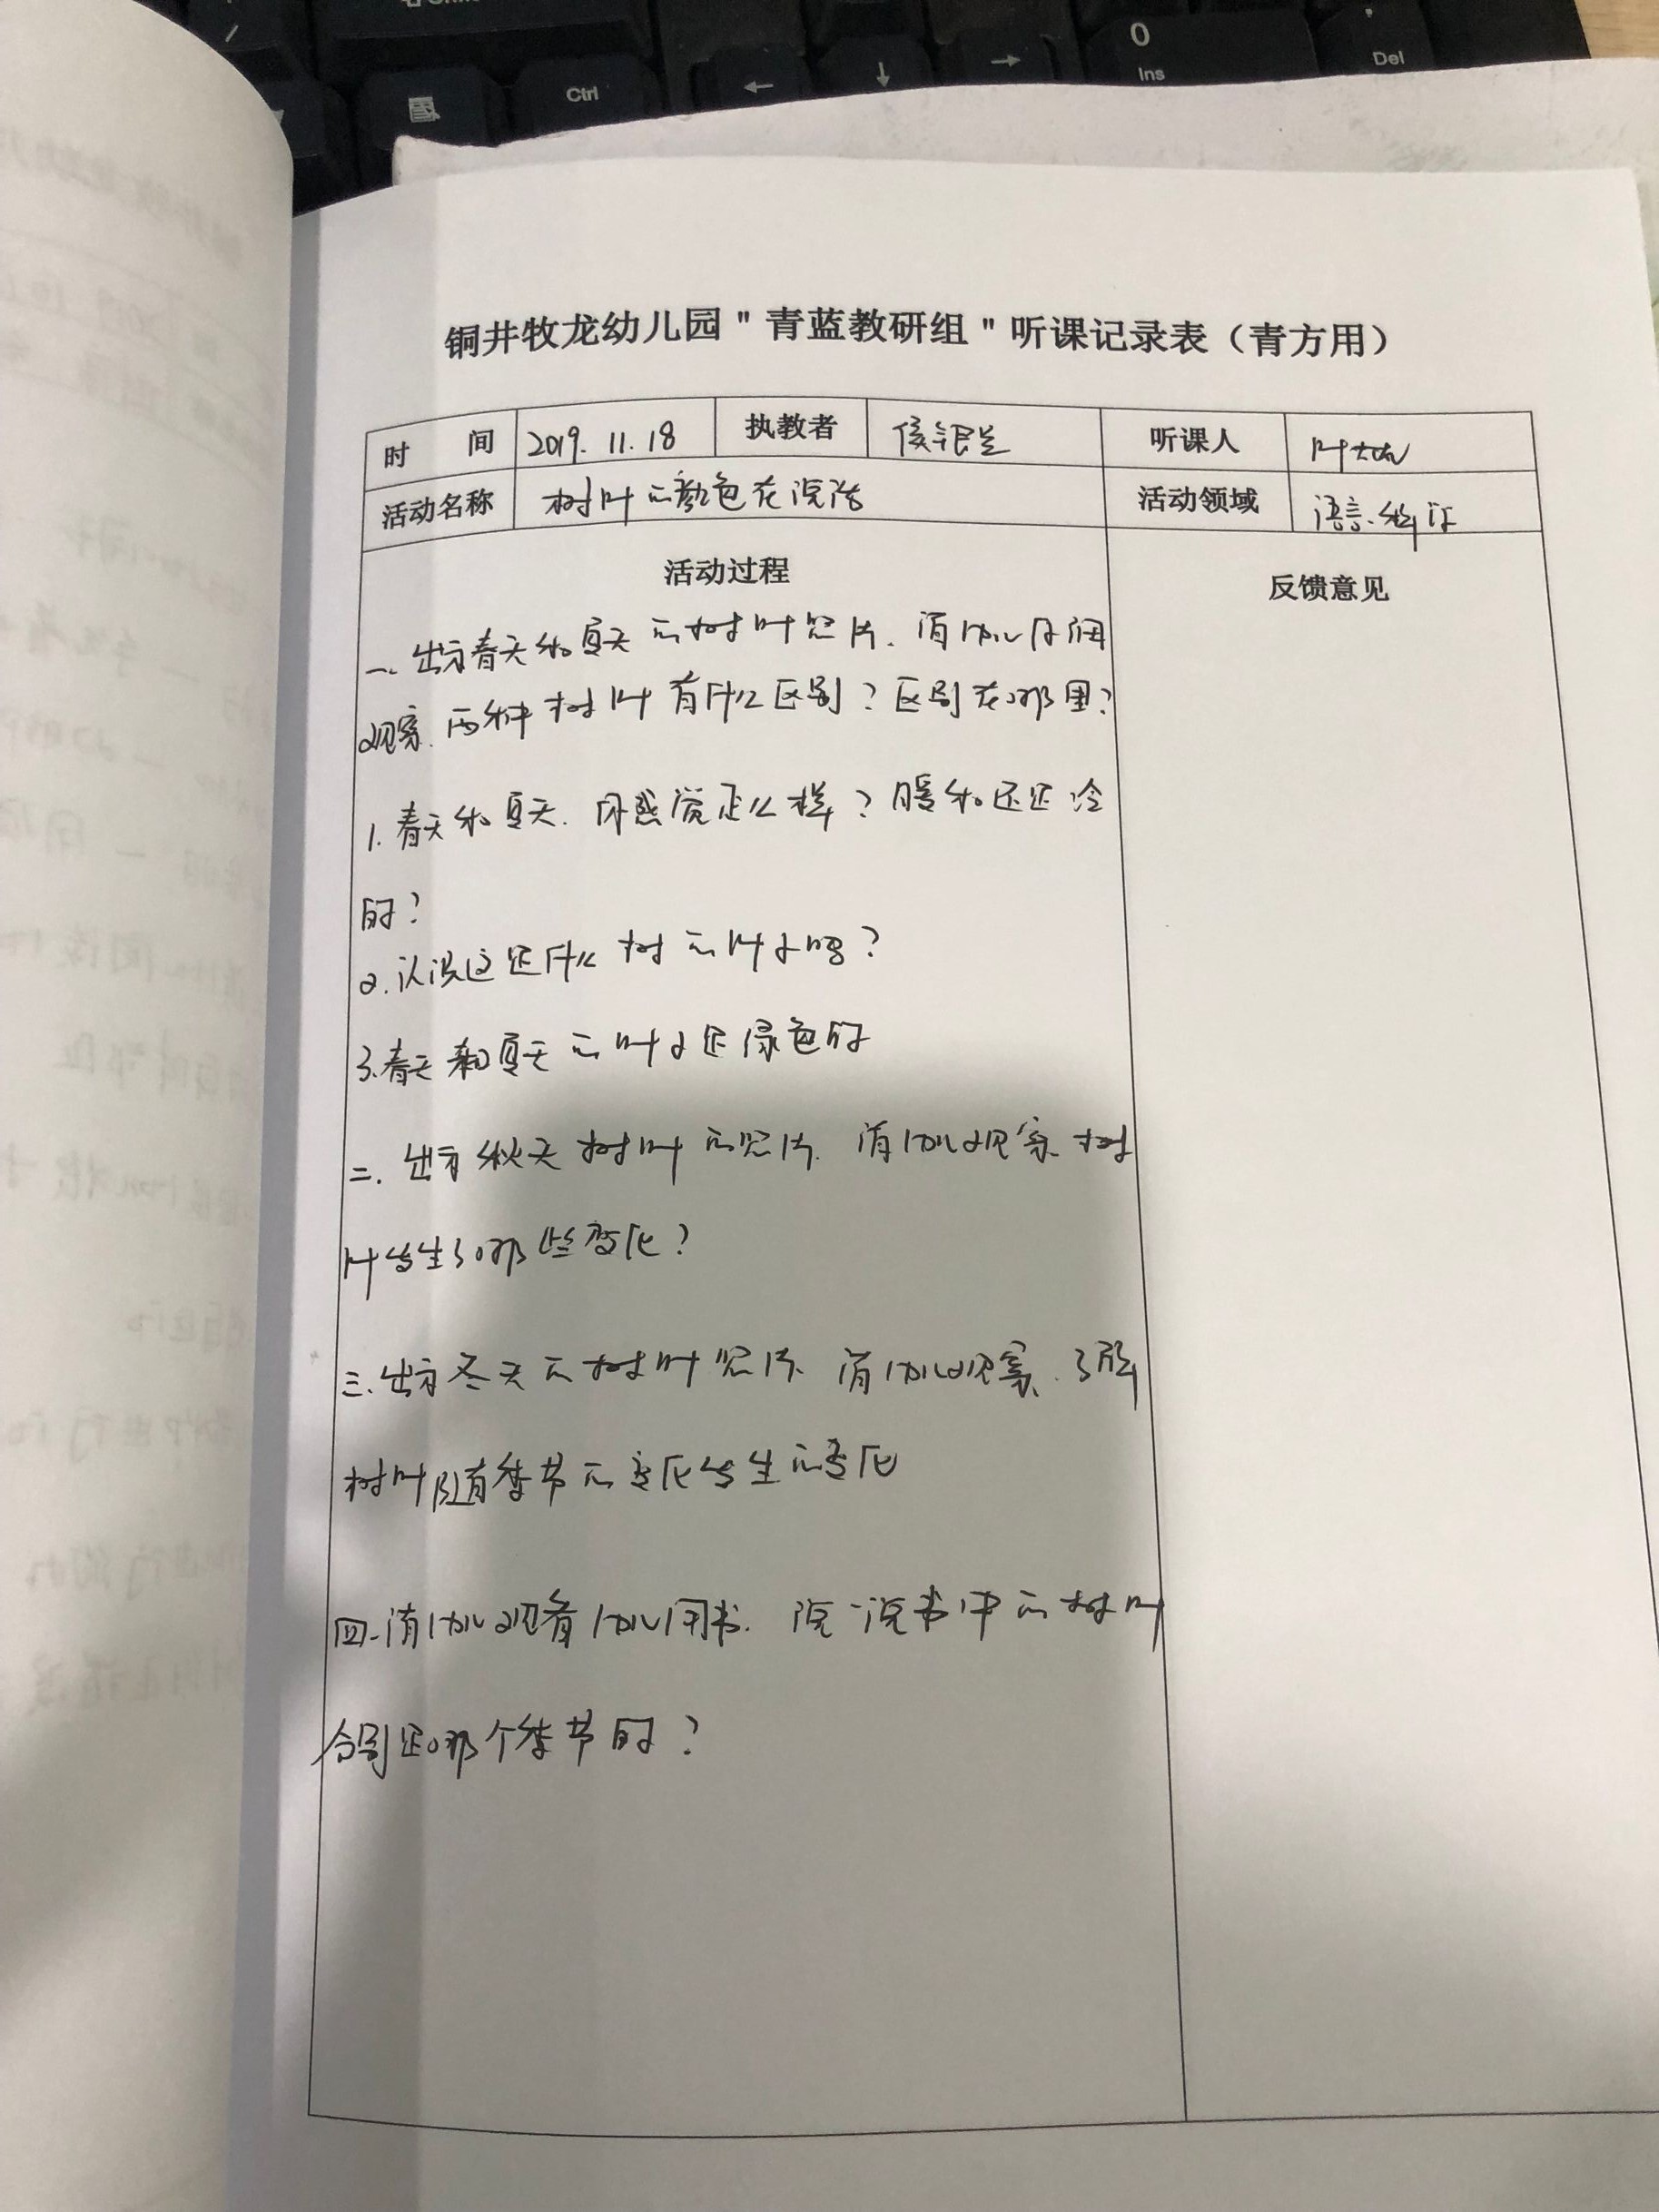 铜井牧龙幼儿园"青蓝教研组"听课记录表（青方用）
时 间 2019.11.18 执教者 侯银兰 听课人 叶
活动名称 树叶的颜色在说话 活动领域 语言.
活动过程 反馈意见
一.出示春天和夏天的树叶照片.请幼儿仔细
观察.两种树叶有什么区别？区别在哪里？
1.春天和夏天.你感觉怎么样？暖和还是冷
的？
2.认识这是什么树的叶子吗？
3.春天和夏天的叶子是绿色的
二.出示秋天树叶的照片.请幼儿观察.树
叶发生了哪些变化？
三.出示冬天的树叶照片.请幼儿观察.了解
树叶随着季节的变化发生的变化
四.请幼儿观看幼儿用书.说一说书中的树叶
分别是哪个季节的？
Ctrl
←
↓
→
0
Ins
Del